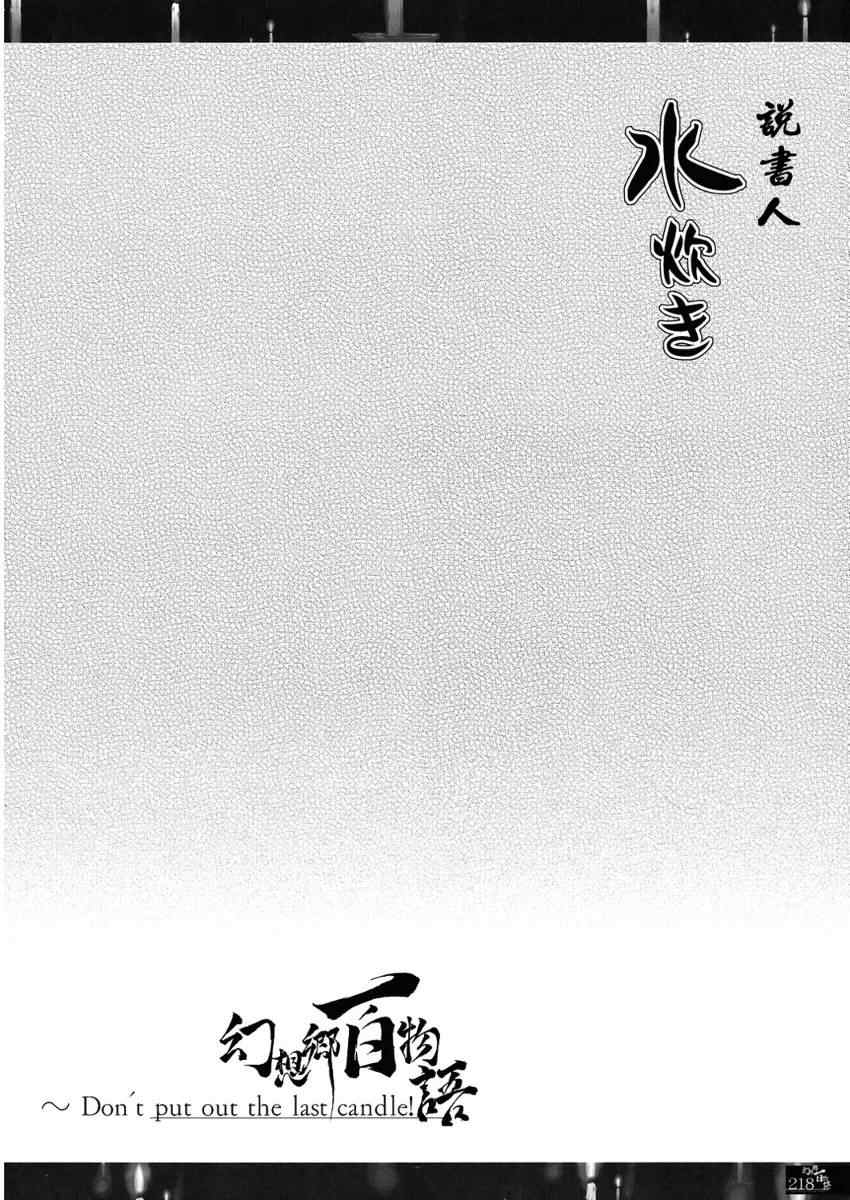 説書人
水炊き
幻想郷百物語
～ Don't put out the last candle!
218